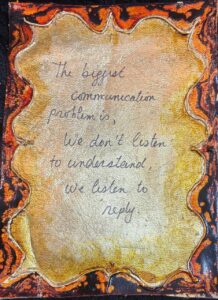 The biggest
communication
problem is,
We don't listen
to understand.
We listen to
reply.